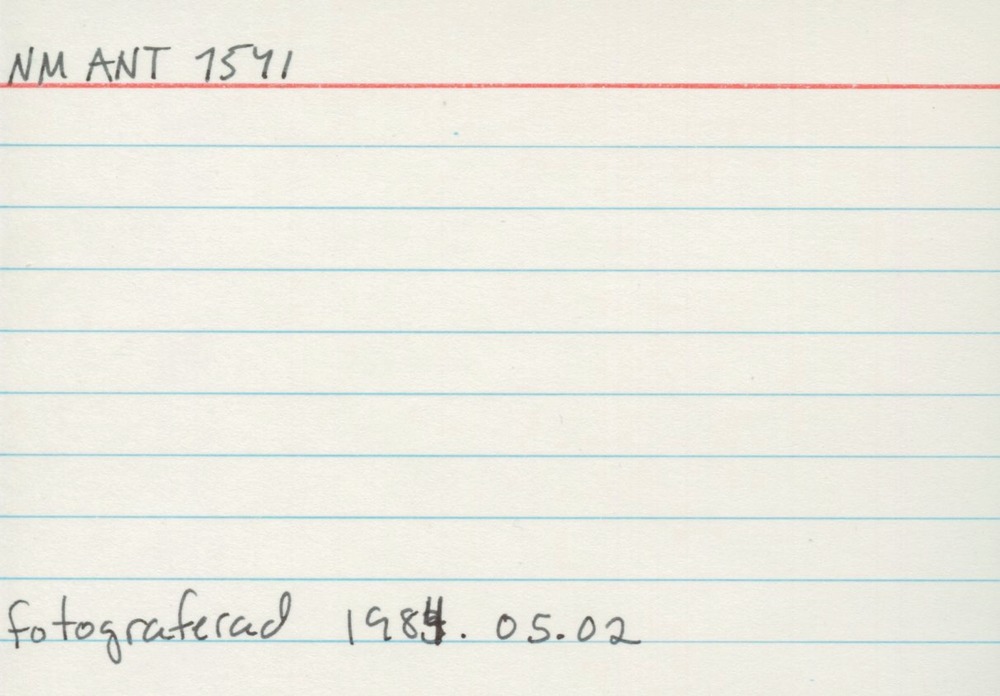 NM ANT 1541
fotograferad 1984. 05.02